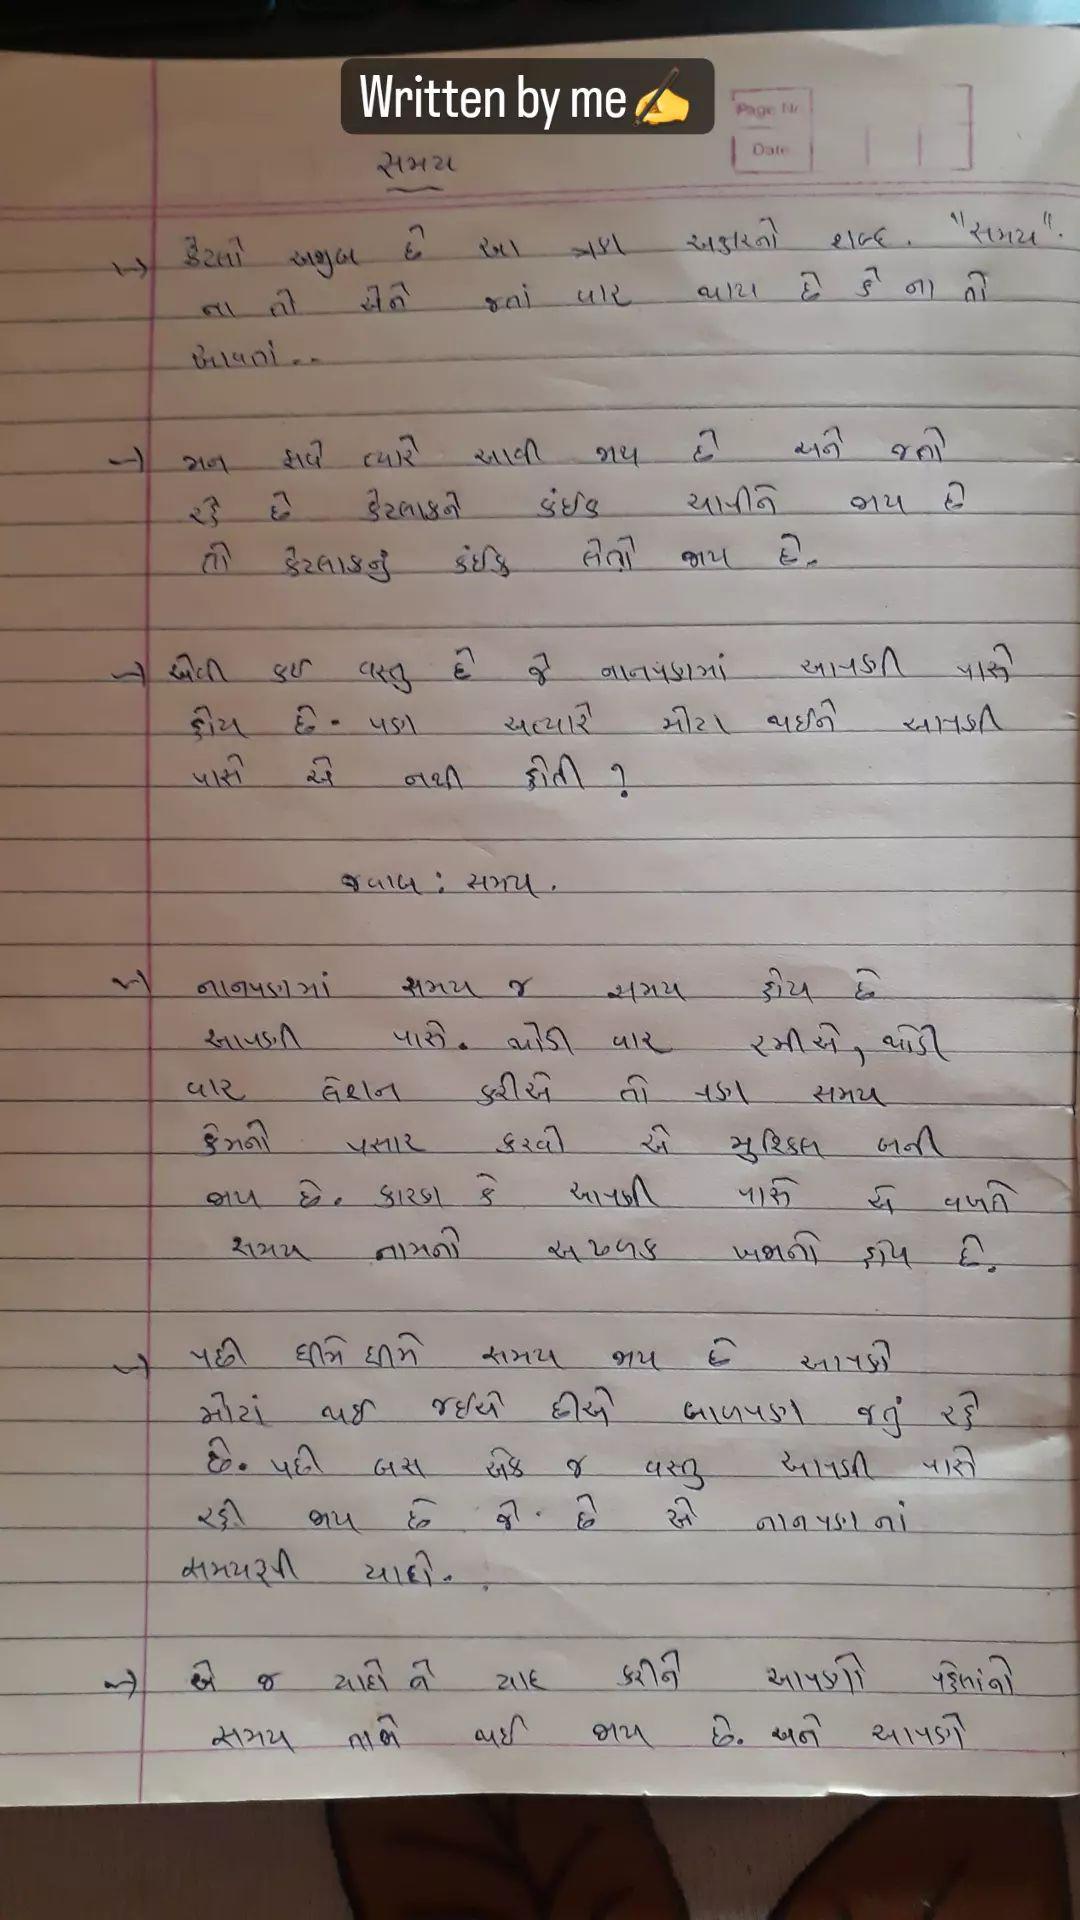 Written by me✍️
Page No
Date
સમય
→ કેટલો અજીબ છે આ ત્રણ અક્ષરનો શબ્દ. "સમય".
ના તો એને જતાં વાર થાય છે કે ના તો
આવતાં..
→ મન ફાવે ત્યારે આવી જાય છે અને જતો
રહે છે કેટલાકને કંઈક આપીને જાય છે
તો કેટલાકનું કંઈક લેતો જાય છે.
→ એવી કઇ વસ્તુ છે જે નાનપણમાં આપણી પાસે
હોય છે. પણ અત્યારે મોટા થઈને આપણી
પાસે એ નથી હોતી ?
જવાબ : સમય.
→ નાનપણમાં સમય જ સમય હોય છે
આપણી પાસે. થોડી વાર રમીએ, થોડી
વાર લેશન કરીએ તો પણ સમય
કેમનો પસાર કરવો એ મુશ્કિલ બની
જાય છે. કારણ કે આપણી પાસે એ વખતે
સમય નામનો અઢળક ખજાનો હોય છે.
→ પછી ધીમે ધીમે સમય જાય છે આપણે
મોટાં થઇ જઈએ છીએ બાળપણ જતું રહે
છે. પછી બસ એક જ વસ્તુ આપણી પાસે
રહી જાય છે જે. છે એ નાનપણનાં
સમયરૂપી યાદો..
→ એ જ યાદો ને યાદ કરીને આપણો પહેલાંનો
સમય તાજો થઈ જાય છે. અને આપણે